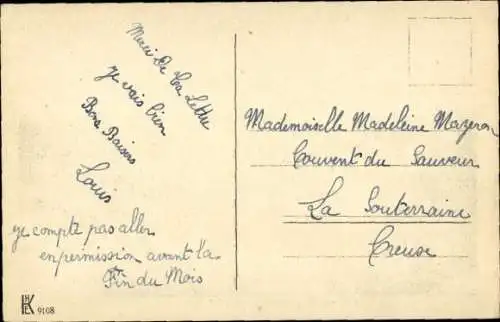 Merci De Ta Lettre
je vais bien
Bons Baisers
Louis
je compte pas aller
en permission avant la
Fin du Mois
Mademoiselle Madeleine Mazeron
Couvent du Sauveur
La Souterraine
Creuse
HK 9108